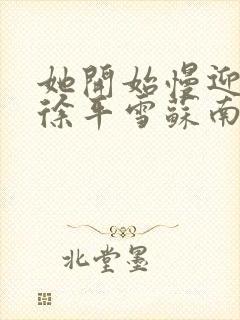 她開始慢迎
徐平雪蘇南
北堂墨